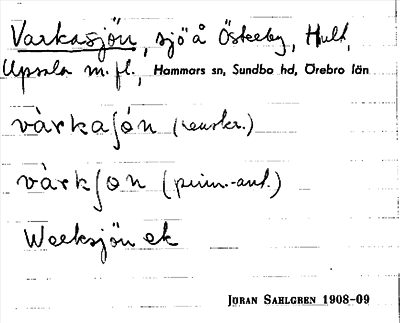 Varkasjön, sjö å Österby, Hult,
Uppsala m.fl., Hammars sn, Sundbo hd, Örebro län
vàrkaʃón (renskr.)
vàrkʃon (prim.-ant.)
Weeksjön ek
JÖRAN SAHLGREN 1908-09